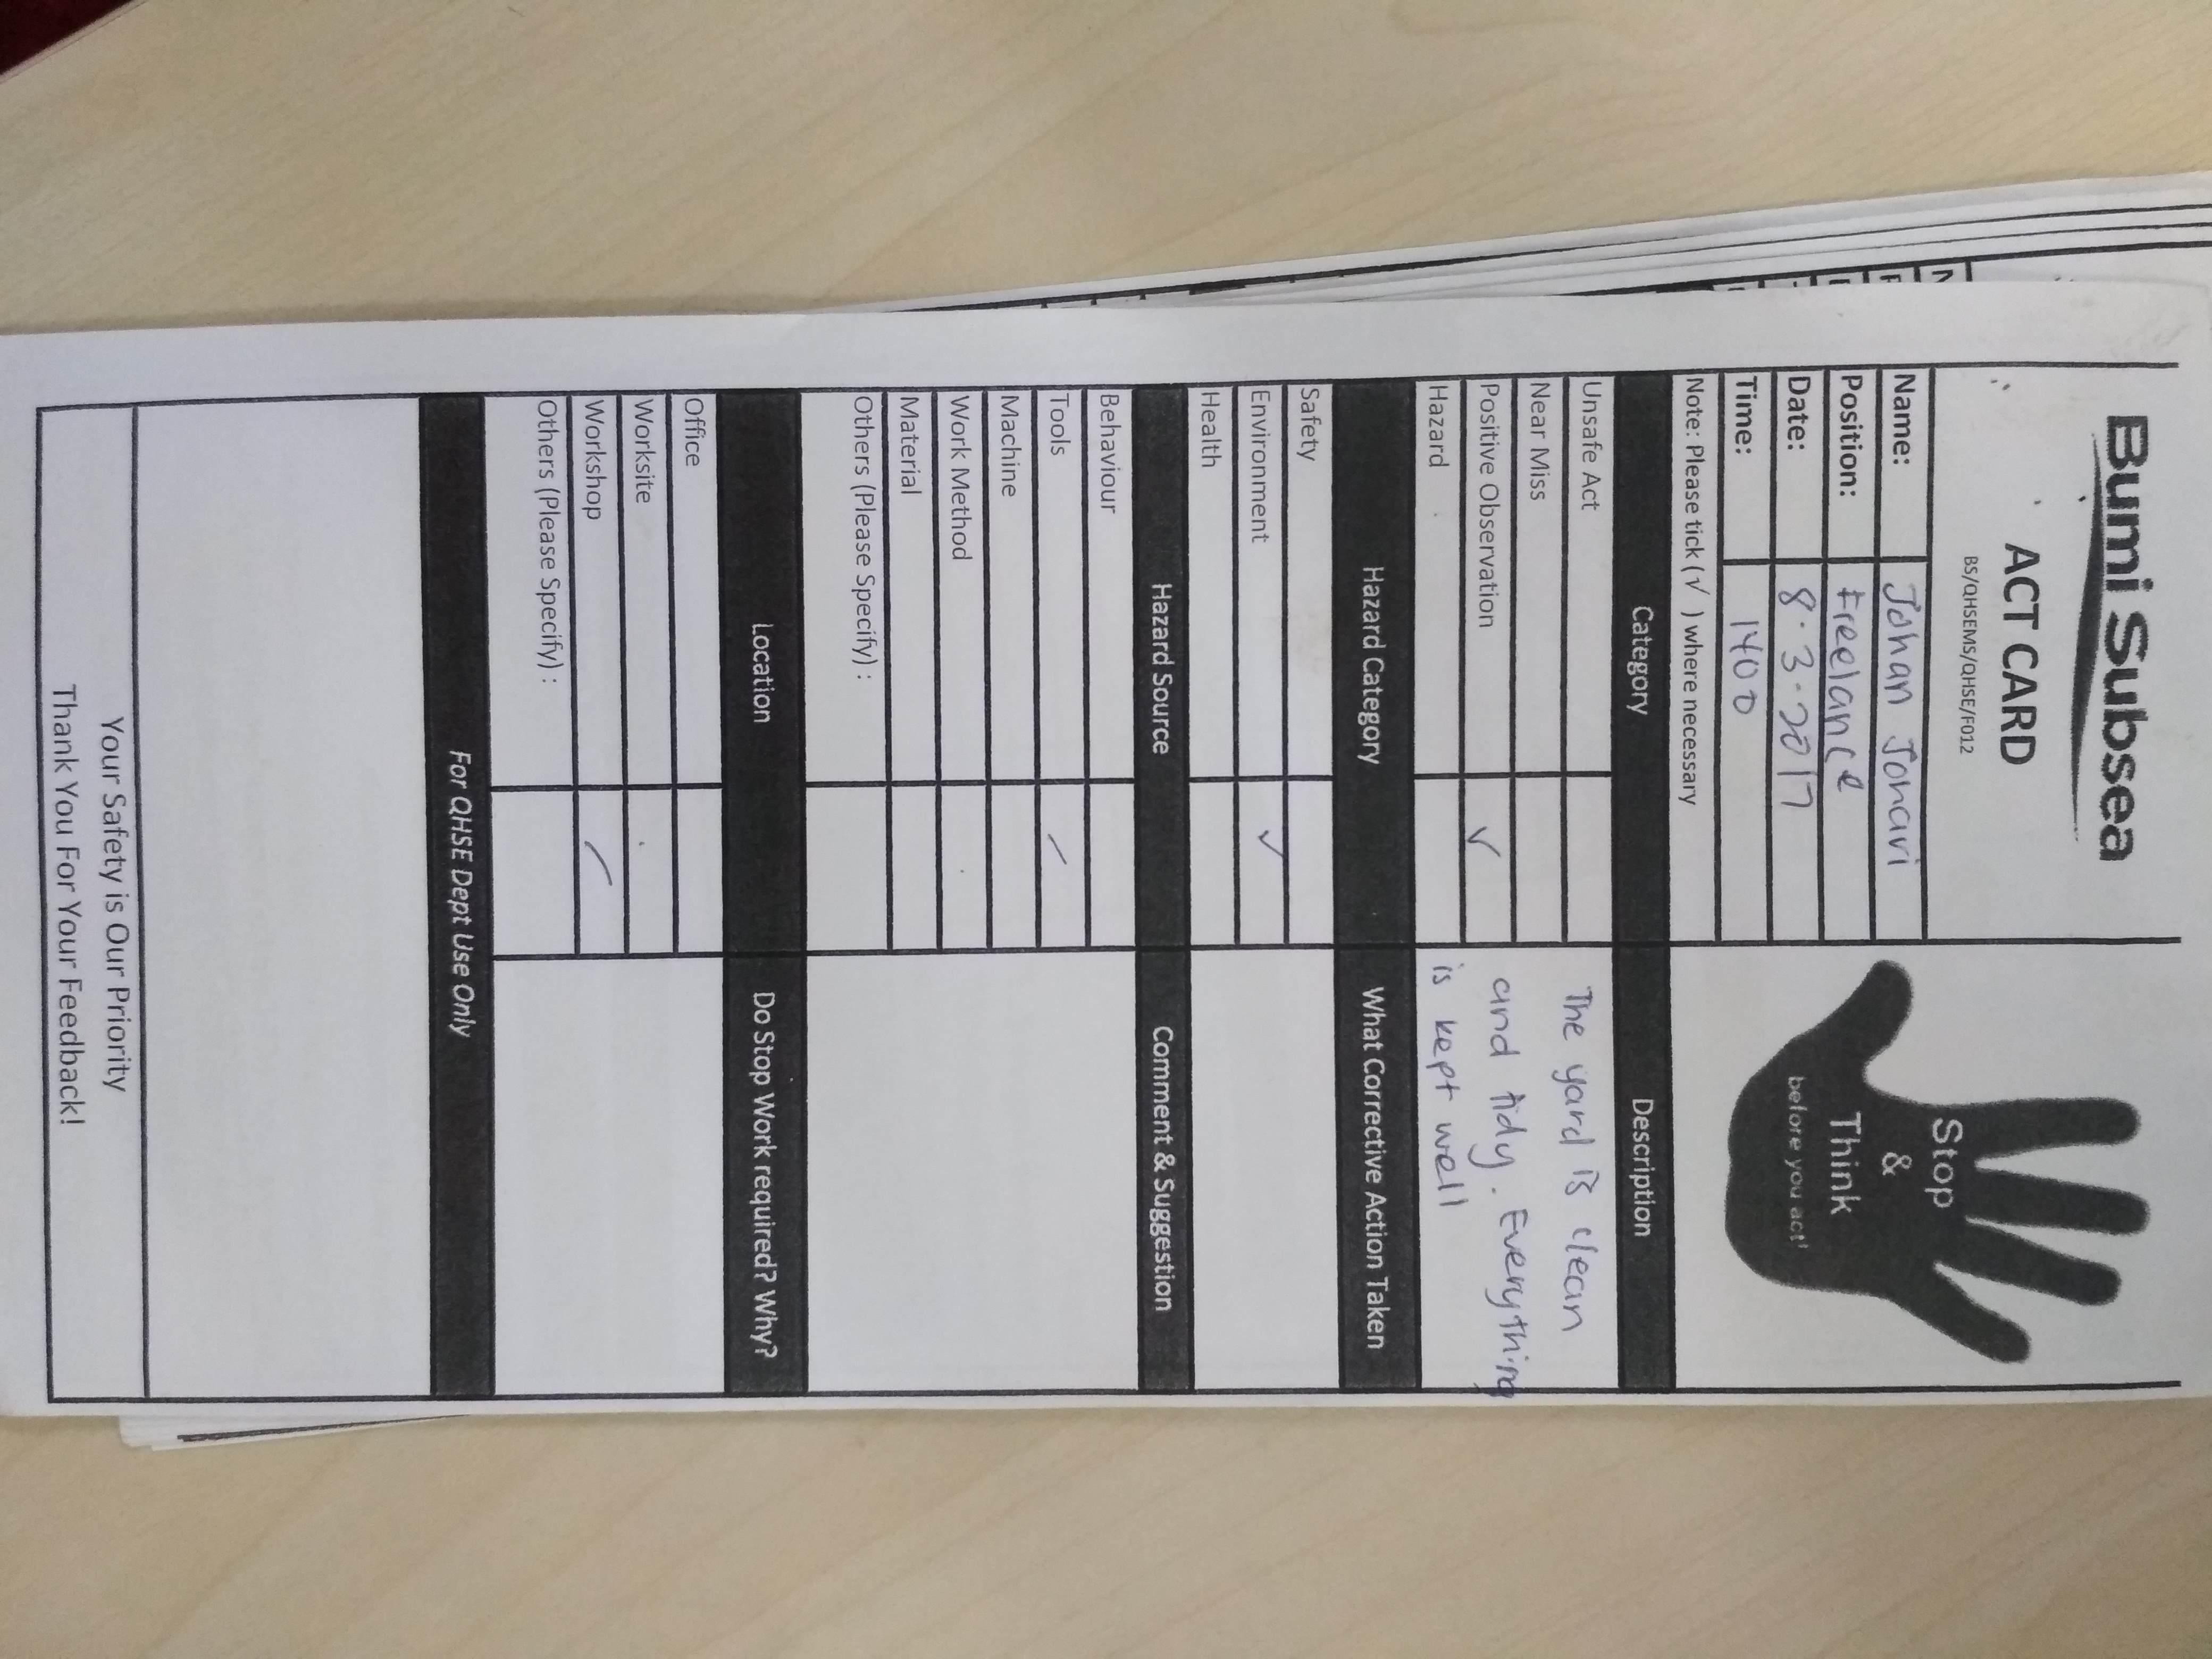 Bumi Subsea
ACT CARD
BS/QHSEMS/QHSE/F012
Stop
&
Think
before you act!
Name: Johan Johari
Position: Freelance
Date: 8.3.2017
Time: 1400
Note: Please tick (√ ) where necessary
Category Description
Unsafe Act
Near Miss
Positive Observation ✓
Hazard
The yard is clean
and tidy. Everything
is kept well
Hazard Category What Corrective Action Taken
Safety
Environment ✓
Health
Hazard Source Comment & Suggestion
Behaviour
Tools /
Machine
Work Method
Material
Others (Please Specify) :
Location Do Stop Work required? Why?
Office
Worksite
Workshop /
Others (Please Specify) :
For QHSE Dept Use Only
Your Safety is Our Priority
Thank You For Your Feedback!